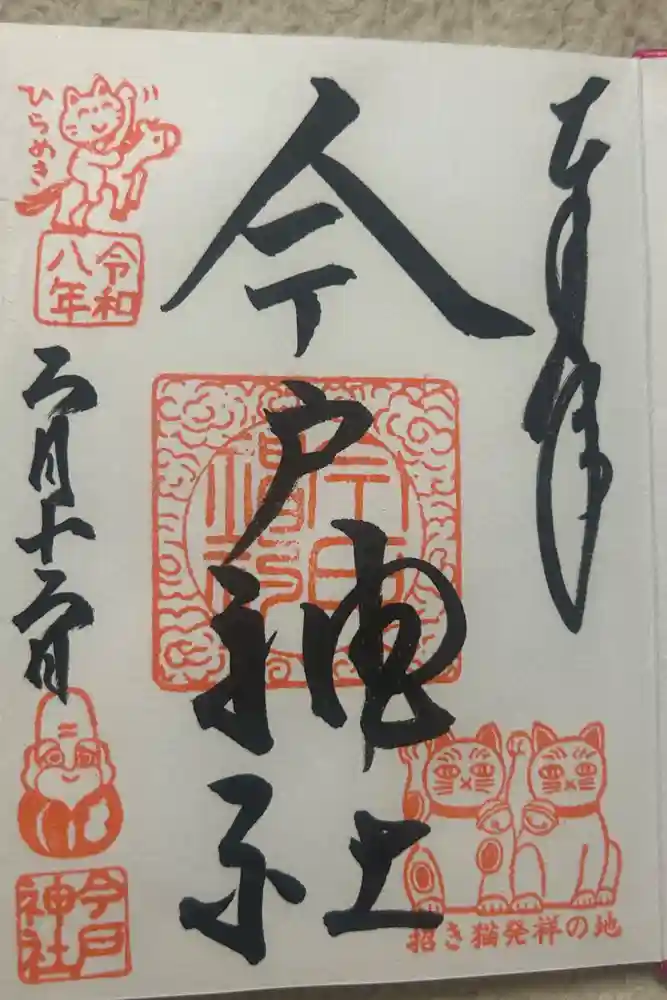 奉拝
今戸神社
招き猫発祥の地
ひらめき
令和
八年
二月十二日
今戸
神社